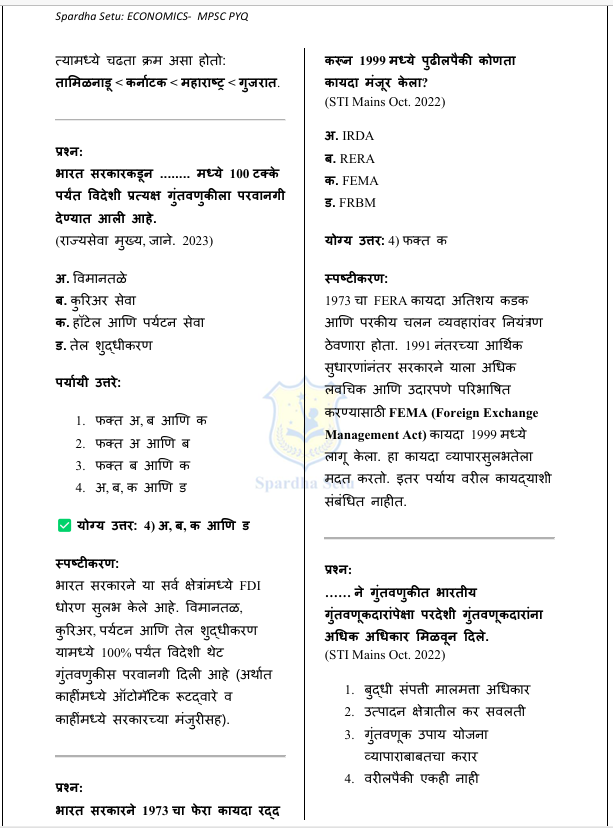 Spardha Setu: ECONOMICS- MPSC PYQ
त्यामध्ये चढता क्रम असा होतो:
तामिळनाडू < कर्नाटक < महाराष्ट्र < गुजरात.
प्रश्न:
भारत सरकारकडून ........ मध्ये 100 टक्के
पर्यंत विदेशी प्रत्यक्ष गुंतवणुकीला परवानगी
देण्यात आली आहे.
(राज्यसेवा मुख्य, जाने. 2023)
अ. विमानतळे
ब. कुरिअर सेवा
क. हॉटेल आणि पर्यटन सेवा
ड. तेल शुद्धीकरण
पर्यायी उत्तरे:
1. फक्त अ, ब आणि क
2. फक्त अ आणि ब
3. फक्त ब आणि क
4. अ, ब, क आणि ड
✅ योग्य उत्तर: 4) अ, ब, क आणि ड
स्पष्टीकरण:
भारत सरकारने या सर्व क्षेत्रांमध्ये FDI
धोरण सुलभ केले आहे. विमानतळ,
कुरिअर, पर्यटन आणि तेल शुद्धीकरण
यामध्ये 100% पर्यंत विदेशी थेट
गुंतवणुकीस परवानगी दिली आहे (अर्थात
काहींमध्ये ऑटोमॅटिक रूटद्वारे व
काहींमध्ये सरकारच्या मंजुरीसह).
प्रश्न:
भारत सरकारने 1973 चा फेरा कायदा रद्द
करून 1999 मध्ये पुढीलपैकी कोणता
कायदा मंजूर केला?
(STI Mains Oct. 2022)
अ. IRDA
ब. RERA
क. FEMA
ड. FRBM
योग्य उत्तर: 4) फक्त क
स्पष्टीकरण:
1973 चा FERA कायदा अतिशय कडक
आणि परकीय चलन व्यवहारांवर नियंत्रण
ठेवणारा होता. 1991 नंतरच्या आर्थिक
सुधारणांनंतर सरकारने याला अधिक
लवचिक आणि उदारपणे परिभाषित
करण्यासाठी FEMA (Foreign Exchange
Management Act) कायदा 1999 मध्ये
लागू केला. हा कायदा व्यापारसुलभतेला
मदत करतो. इतर पर्याय वरील कायद्याशी
संबंधित नाहीत.
प्रश्न:
...... ने गुंतवणुकीत भारतीय
गुंतवणूकदारांपेक्षा परदेशी गुंतवणूकदारांना
अधिक अधिकार मिळवून दिले.
(STI Mains Oct. 2022)
1. बुद्धी संपत्ती मालमत्ता अधिकार
2. उत्पादन क्षेत्रातील कर सवलती
3. गुंतवणूक उपाय योजना
व्यापाराबाबतचा करार
4. वरीलपैकी एकही नाही
Spardha Setu